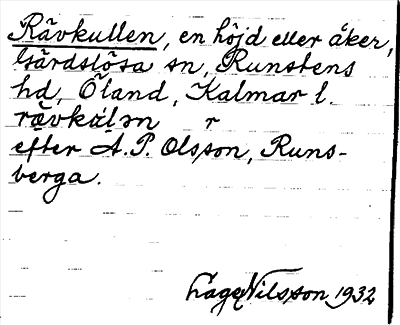 Rävkullen, en höjd eller åker,
Gärdslösa sn, Runstens
hd, Öland, Kalmar l.
r
efter A. P. Olsson, Runs-
berga.
Lage Nilsson 1932